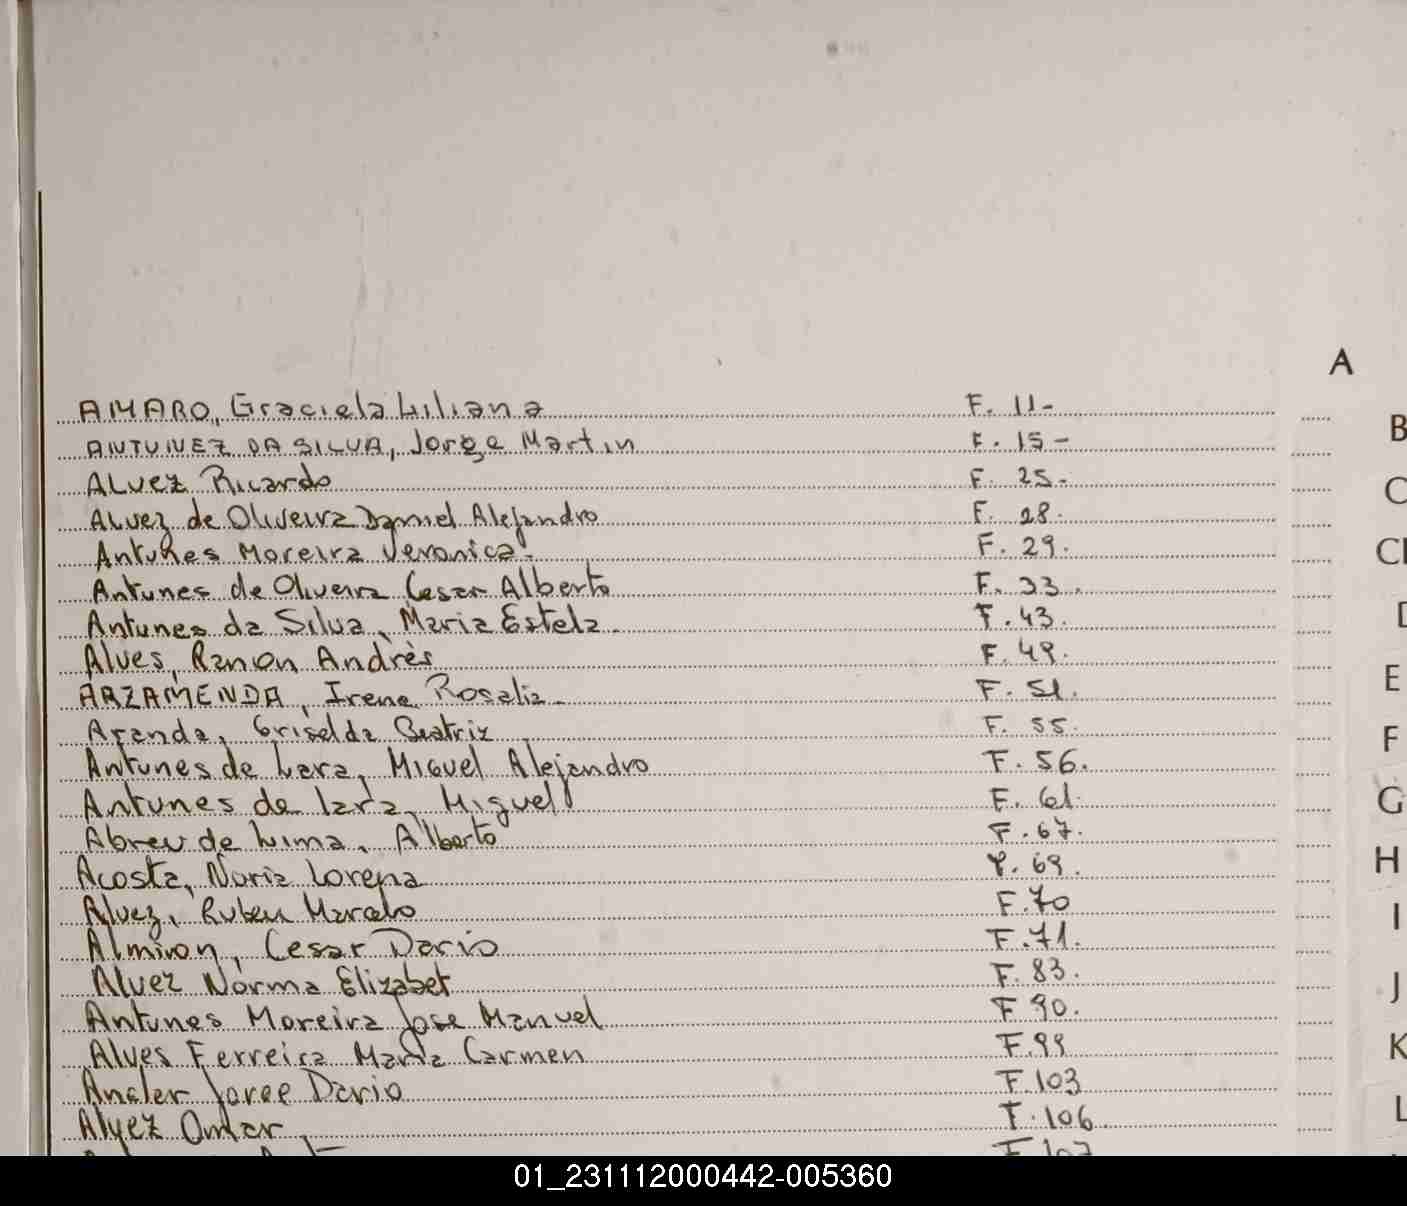 A
AMARO, Graciela Liliana F. 11-
ANTUNEZ DA SILVA, Jorge Martin F. 15-
ALVEZ Ricardo F. 25-
ALVEZ de Oliveira Daniel Alejandro F. 28.
Antunes Moreira Veronica- F. 29.
Antunes de Oliveira Cesar Alberto F. 33.
Antunes da Silva, Maria Estela. F. 43.
Alves, Ramon Andrès F. 49.
ARZAMENDA, Irene Rosalia- F. 51.
Aranda, Griselda Beatriz F. 55.
Antunes de Lara, Miguel Alejandro F. 56.
Antunes de lara, Miguel F. 61.
Abreu de Lima, Alberto F. 67.
Acosta, Nuria Lorena F. 69.
Alvez, Ruben Marcelo F. 70
Almiron, Cesar Dario F. 71.
Alvez Norma Elizabet F. 83.
Antunes Moreira Jose Manuel F 90.
Alves Ferreira Maria Carmen F. 99
Ancler Jorge Dario F. 103
Alvez Omar, F. 106
F 107
B
C
E
F
G
H
I
J
K
L
01_231112000442-005360